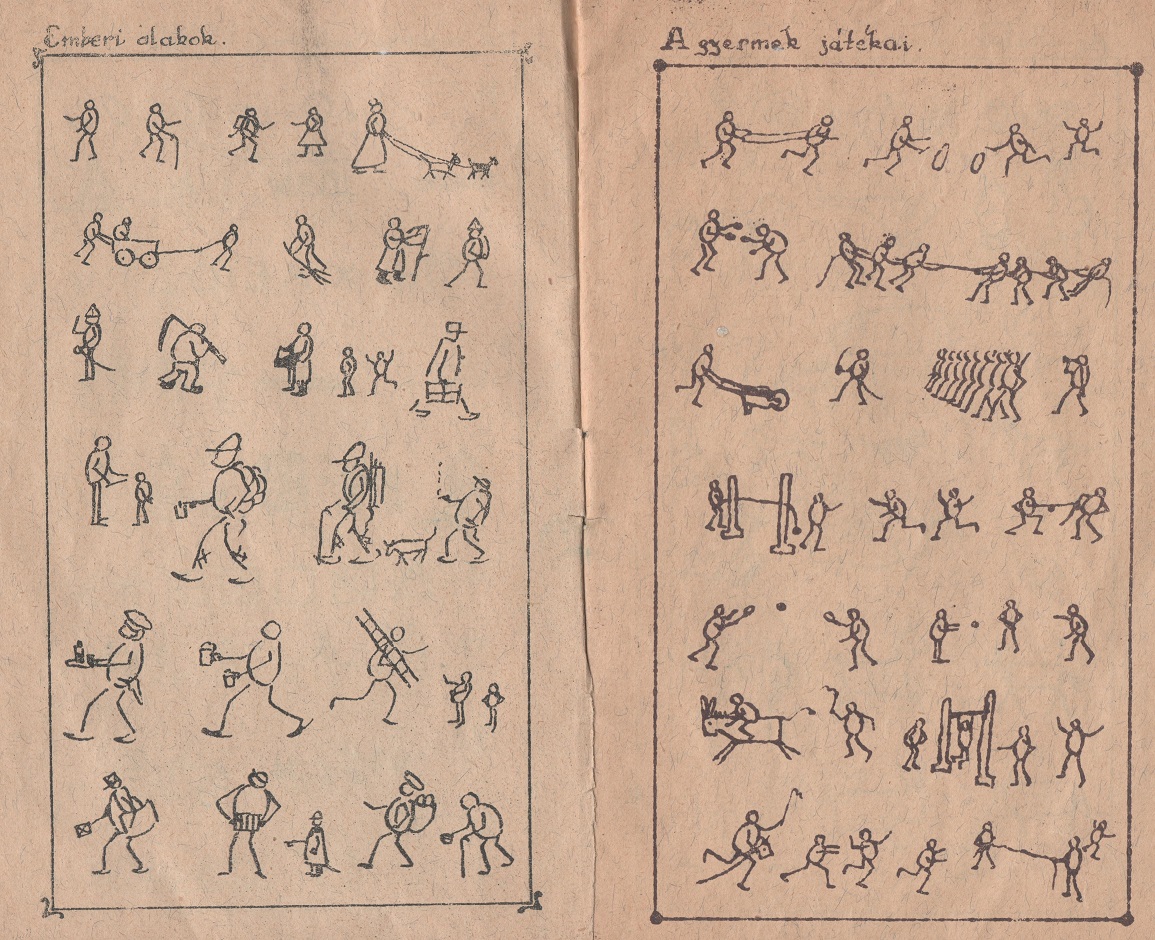 Emberi alakok.
A gyermek játékai.